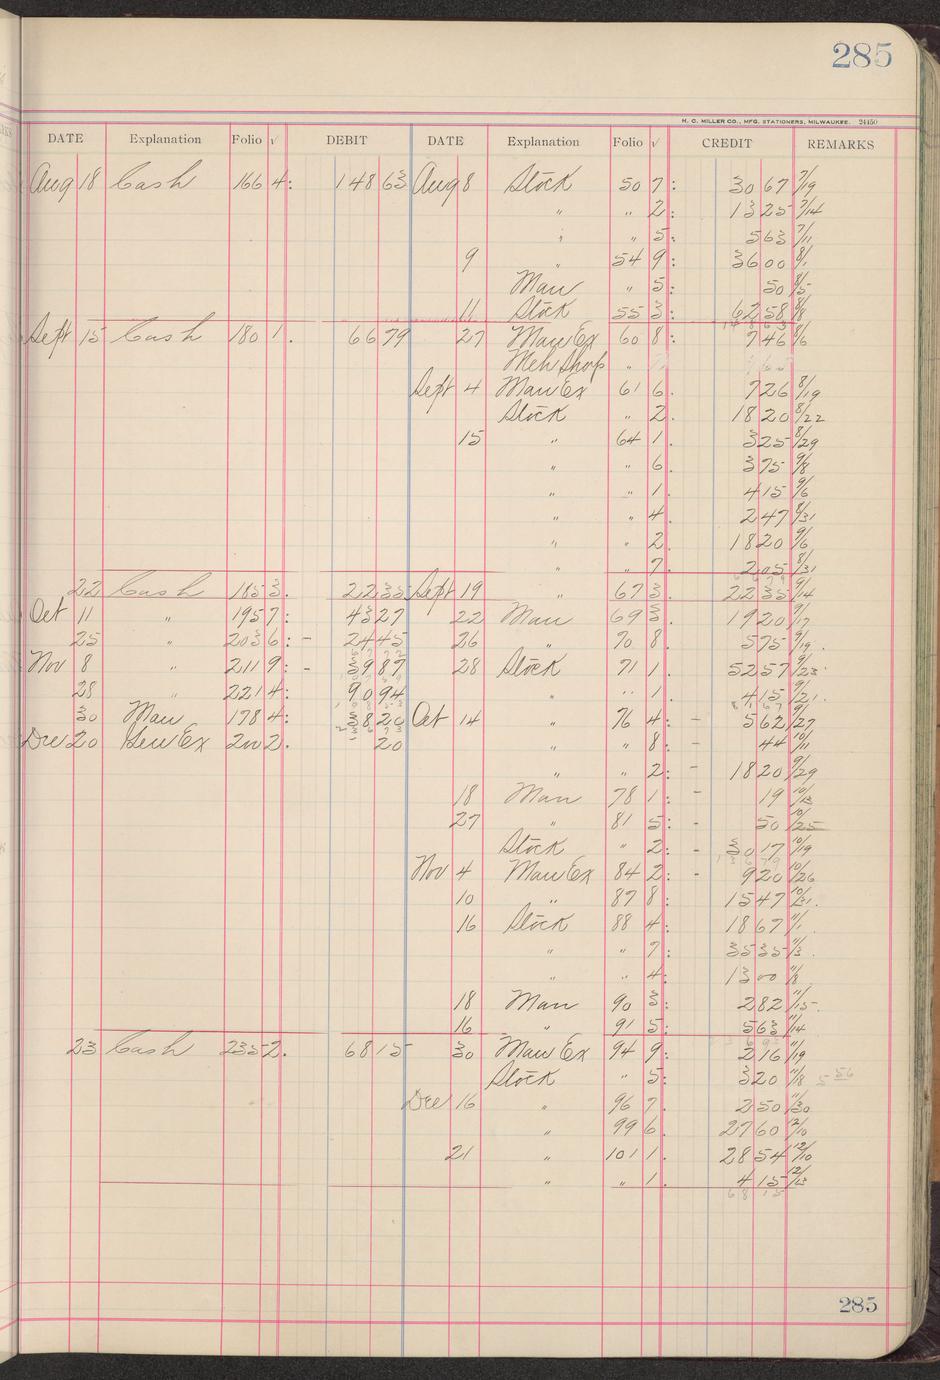 285
H. C. MILLER CO., MFG. STATIONERS, MILWAUKEE. 24450
DATE Explanation Folio √ DEBIT DATE Explanation Folio √ CREDIT REMARKS
Aug 18 Cash 166 4: 148 63 Aug 8 Stock 50 7: 30 67 7/19
" " 2: 13 25 7/14
" " 5: 5 63 7/11
9 " 54 9: 36 00 8/1
Man " 5: 50 8/5
11 Stock 55 3: 62 58 8/8
Sept 15 Cash 180 1. 66 79 27 Man Ex 60 8: 7 46 8/6
Meh Shop "
Sept 4 Man Ex 61 6. 7 26 8/19
Stock " 2. 18 20 8/22
15 " 64 1. 3 25 8/29
" " 6. 3 75 9/8
" " 1. 4 15 9/6
" " 4. 2 47 8/31
" " 2. 18 20 9/6
" " 7. 2 05 8/31
22 Cash 185 3. 22 35 Sept 19 " 67 3. 22 35 9/14
Oct 11 " 195 7: 43 27 22 Man 69 3: 19 20 9/17
25 " 203 6: - 24 45 26 " 70 8. 5 75 9/19.
Nov 8 " 211 9: - 39 87 28 Stock 71 1. 52 57 9/23
28 " 221 4: 90 94 " " 1. 4 15 9/21.
30 Man 178 4: 38 20 Oct 14 " 76 4: - 5 62 9/27
Dec 20 Genl Ex 200 2. 20 " " 8. - 44 10/11
" " 2: - 18 20 9/29
18 Man 78 1: - 19 10/13
27 " 81 5: - 50 10/25
Stock " 2: - 30 17 10/19
Nov 4 Man Ex 84 2: - 9 20 10/26
10 " 87 8: 15 47 10/31.
16 Stock 88 4: 18 67 11/1
" " 7: 35 35 11/3.
" " 4: 13 00 11/8
18 Man 90 3: 2 82 11/15
16 " 91 5: 5 63 11/14
23 Cash 235 2. 68 15 30 Man Ex 94 9: 2 16 11/19
Stock " 5: 3 20 11/18 5 56
Dec 16 " 96 7. 2 50 11/30
" 99 6. 27 60 12/10
21 " 101 1. 28 54 12/10
" " 1. 4 15 12/13
68 15
285